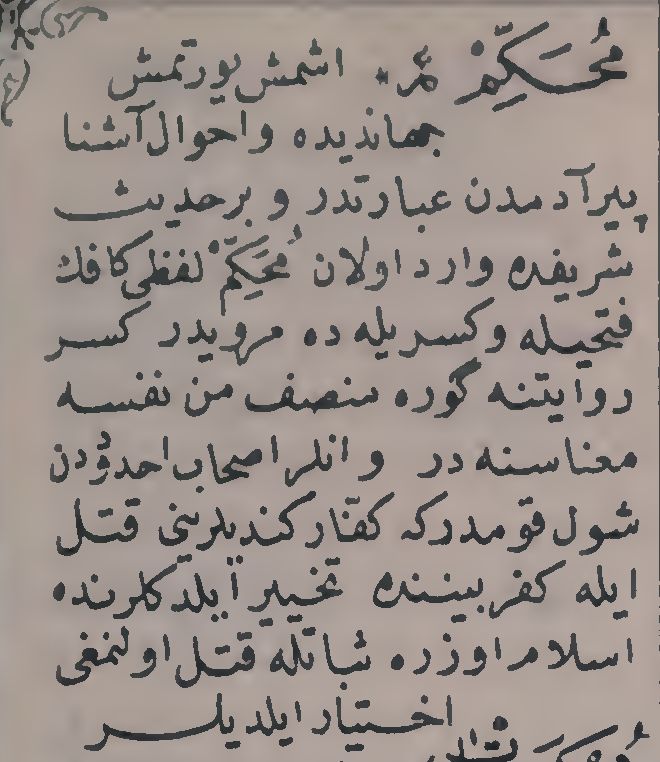 مُحَكِّمْ اشمش یورتمش
جهاندیده و احوال آشنا
پیر آدمدن عبارتدر و بر حدیث
شریفده وارد اولان مُحَكِّمْ لفظی كافك
فتحیله و كسریله ده مرویدر كسر
روایتنه كوره منصف من نفسه
معناسنه در و انلر اصحاب احدوددن
شول قومدركه كفّار كندیلرینی قتل
ایله كفر بیننده تخییر ایلدكلرنده
اسلام اوزره ثباتله قتل اولنمغی
اختیار ایلدیلر